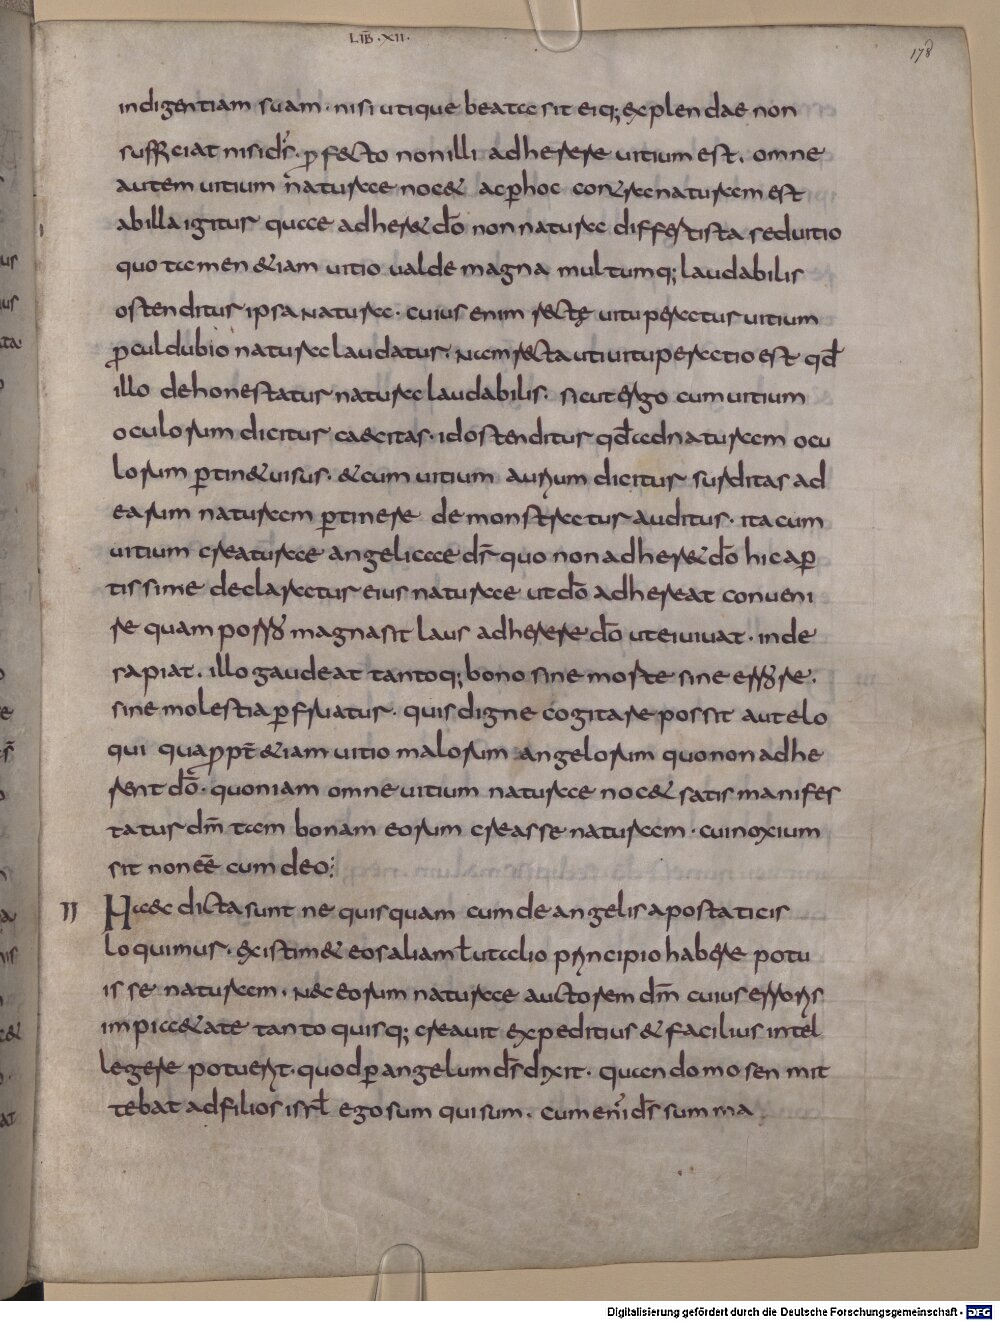 LIB̅ · XII ·
178
indigentiam suam · nisi utique beata sit eiq; explendae non
sufficiat nisi ds̅ · ꝓfecto non illi adherere uitium est . omne
autem uitium naturae nocet ac ꝑhoc contra naturam est
ab illa igitur quae adheret do̅ non natura differt ista sed uitio
quo tamen etiam uitio ualde magna multumq; laudabilis
ostenditur ipsa natura · cuius enim recte uituperatur uitium
ꝓculdubio natura laudatur . nam recta uti uituperatio est qd̅
illo dehonestatur natura laudabilis . sicut ergo cum uitium
oculorum dicitur caecitas · id ostenditur qd̅ ad naturam ocu
lorum ꝑtinet uisus · et cum uitium aurium dicitur surditas ad
earum naturam ꝑtinere demonstratur auditus · ita cum
uitium creaturae angelicae ds̅r quo non adheret do̅ hic aꝑ
tissime declaratur eius naturae ut do̅ adhereat conueni
re quam porro magna sit laus adherere do̅ ut ei uiuat · inde
sapiat . illo gaudeat tantoq; bono sine morte sine errore .
sine molestia ꝑfruatur · quis digne cogitare possit aut elo
qui quaꝓpt̅ etiam uitio malorum angelorum quo non adhe
rent do̅ · quoniam omne uitium naturae nocet satis manifes
tatur dm̅ tam bonam eorum creasse naturam · cui noxium
sit non ee̅ cum deo ;
II Haec dicta sunt ne quisquam cum de angelis apostaticis
loquimur · existimet eos aliam ł ut ab alio principio habere potu
isse naturam . nec eorum naturae auctorem dm̅ cuius erroris
impietate tanto quisq; creauit expeditius et facilius intel
legere potuerit · quod ꝑ angelum ds̅ dixit · quando mosen mit
tebat ad filios isrł ego sum qui sum . cum eni̅ ds̅ summa
Digitalisierung gefördert durch die Deutsche Forschungsgemeinschaft - DFG